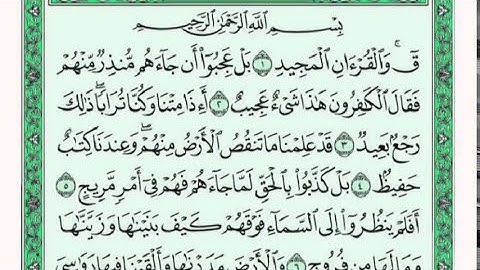 بِسْمِ اللَّهِ الرَّحْمَٰنِ الرَّحِيمِ
قٓ ۚ وَالْقُرْءَانِ الْمَجِيدِ ١ بَلْ عَجِبُوٓا۟ أَن جَآءَهُم مُّنذِرٌ مِّنْهُمْ
فَقَالَ الْكَٰفِرُونَ هَٰذَا شَىْءٌ عَجِيبٌ ٢ أَءِذَا مِتْنَا وَكُنَّا تُرَابًا ۖ ذَٰلِكَ
رَجْعٌۢ بَعِيدٌ ٣ قَدْ عَلِمْنَا مَا تَنقُصُ الْأَرْضُ مِنْهُمْ ۖ وَعِندَنَا كِتَٰبٌ
حَفِيظٌۢ ٤ بَلْ كَذَّبُوا۟ بِالْحَقِّ لَمَّا جَآءَهُمْ فَهُمْ فِىٓ أَمْرٍ مَّرِيجٍ ٥
أَفَلَمْ يَنظُرُوٓا۟ إِلَى السَّمَآءِ فَوْقَهُمْ كَيْفَ بَنَيْنَٰهَا وَزَيَّنَّٰهَا
وَمَا لَهَا مِن فُرُوجٍ ٦ وَالْأَرْضَ مَدَدْنَٰهَا وَأَلْقَيْنَا فِيهَا رَوَٰسِىَ